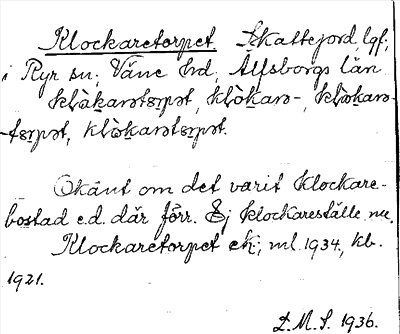 Klockaretorpet. Skattejord, lgf,
i Ryr sn, Väne hd, Älfsborgs län
klåkarətɷrpət, klòkarə-, klòkarə-
-tɷrpət, klòkarətɷrpət.
Okänt om det varit klockare-
bostad e.d. där förr. Ej klockareställe nu.
Klockaretorpet ek, ml. 1934, kb.
1921.
D.M.S. 1936.